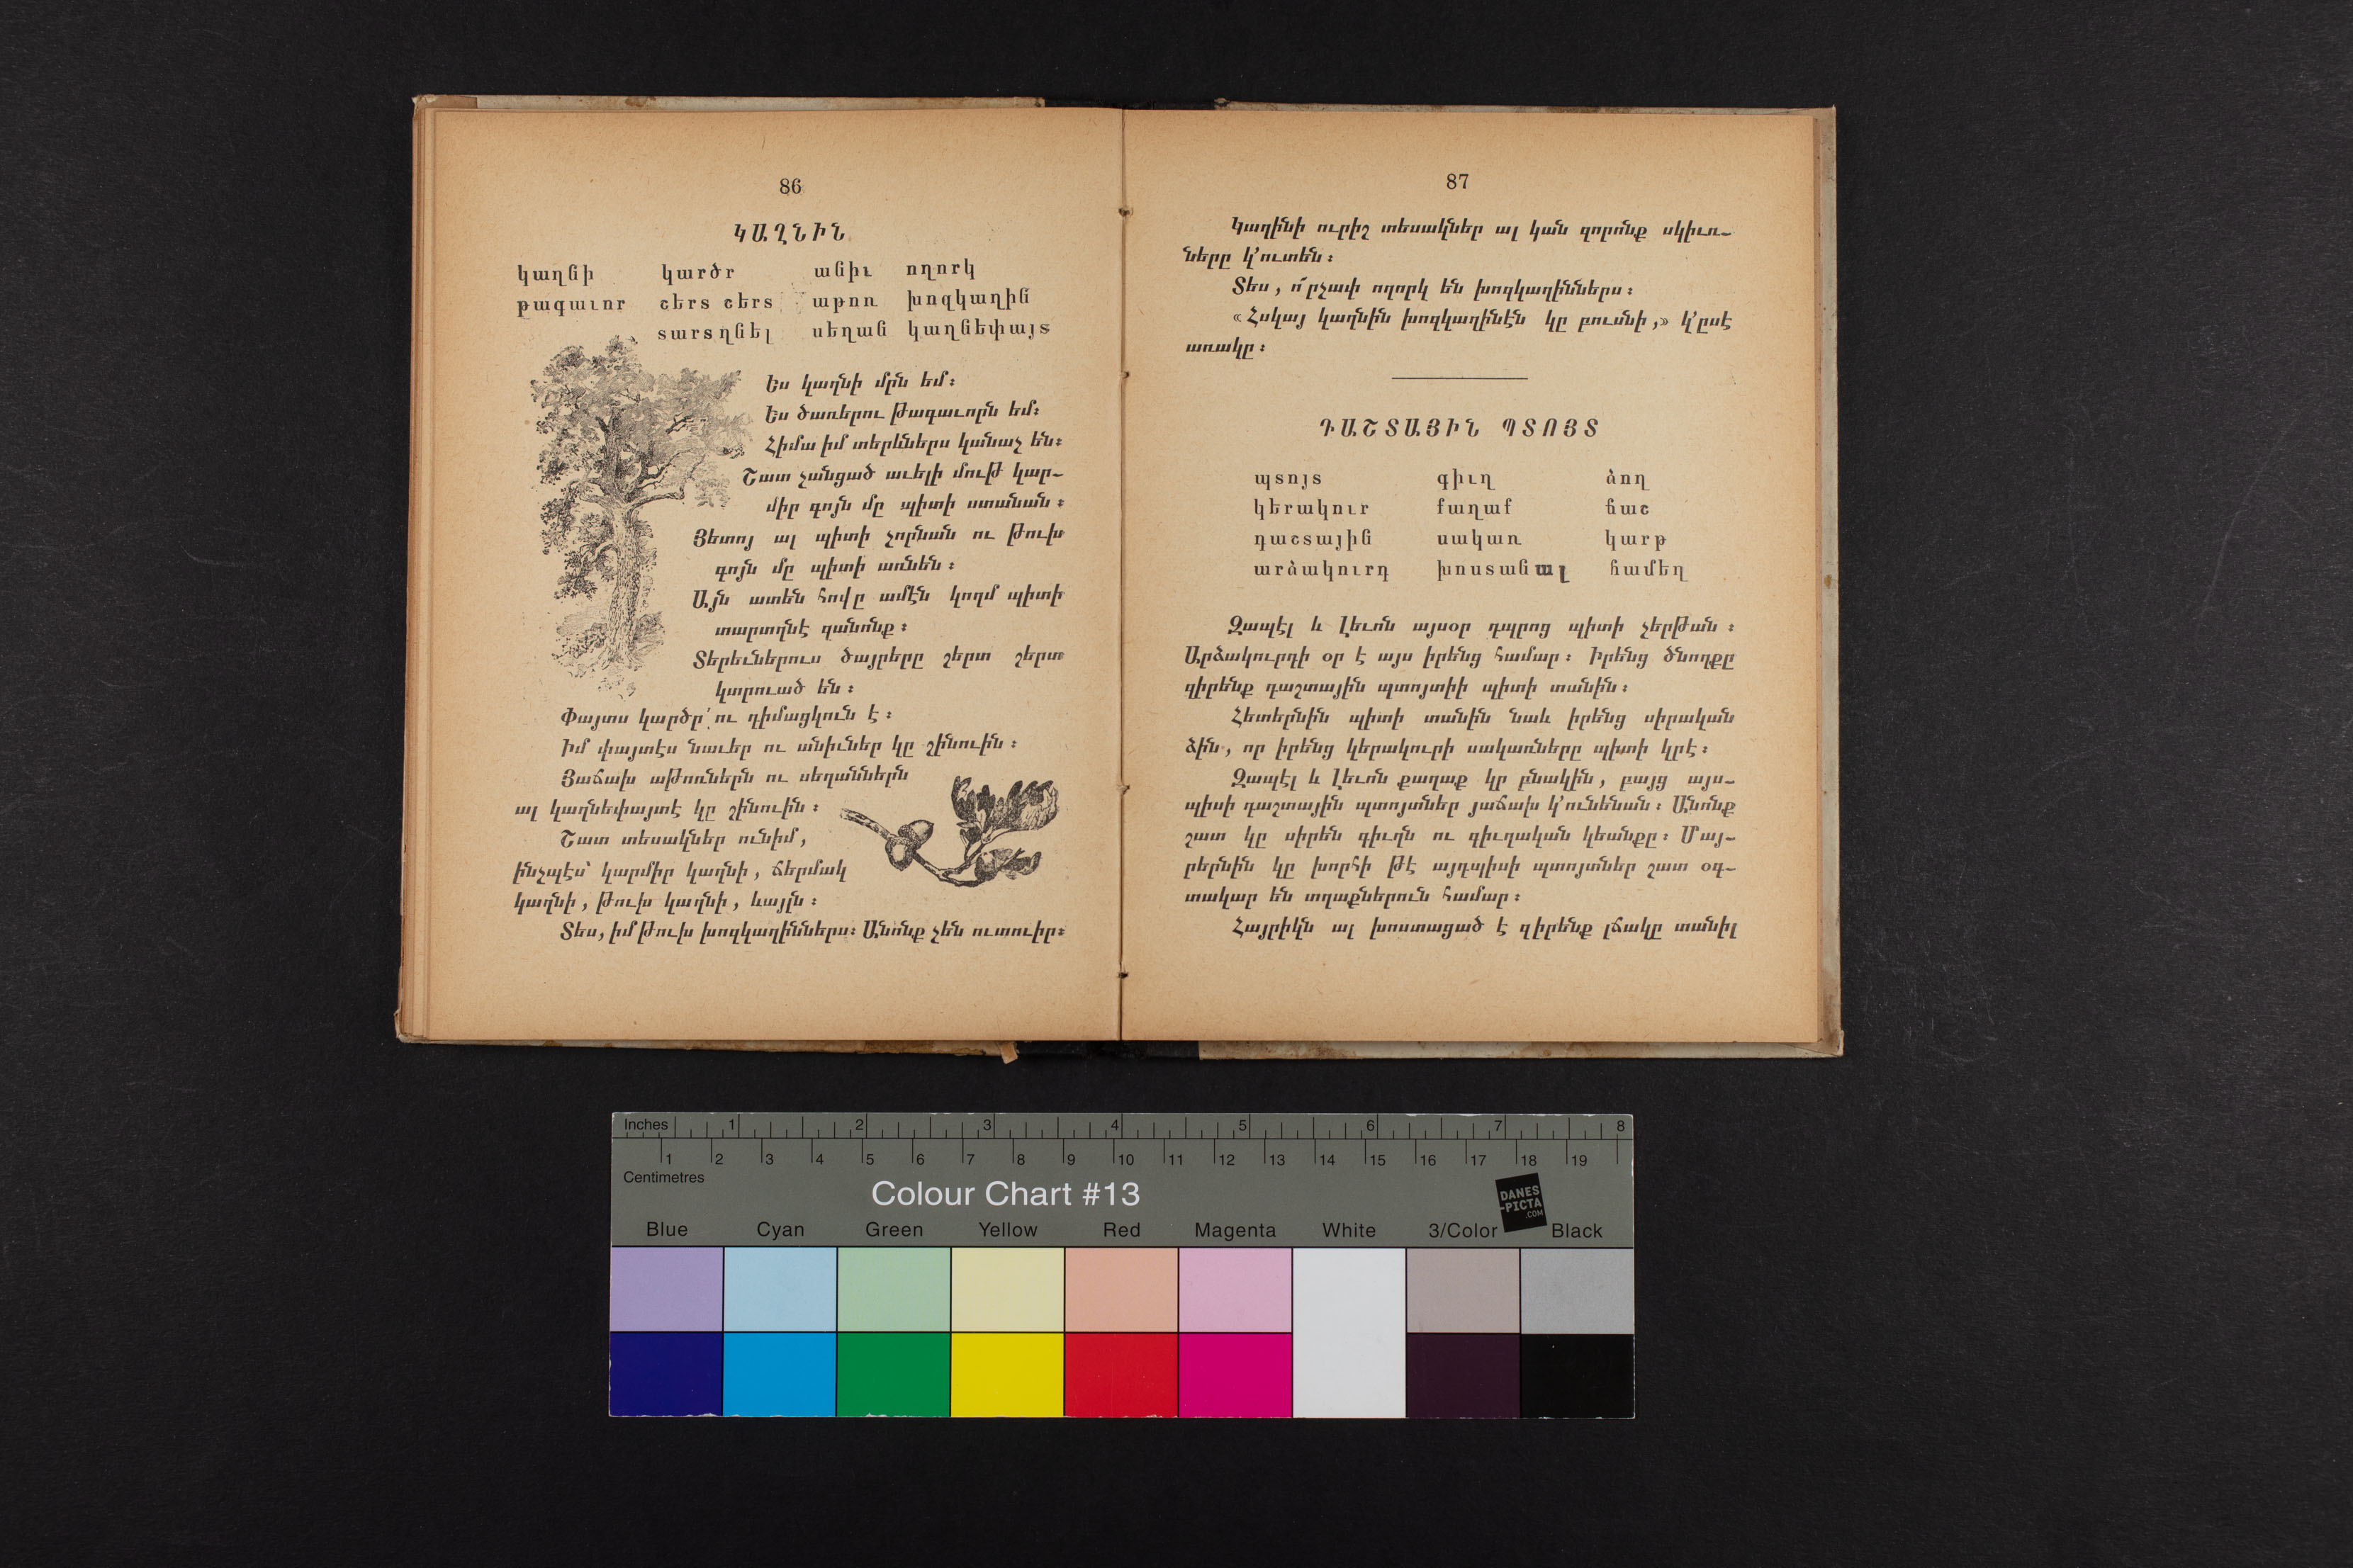 86
ԿԱՂՆԻՆ
կաղնի կարծր անիւ ողորկ
թագաւոր շերտ շերտ աթոռ խոզկաղին
տարտղնել սեղան կաղնեփայտ
Ես կաղնի մըն եմ։
Ես ծառերու թագաւորն եմ։
Հիմա իմ տերևներս կանաչ են։
Շատ չանցած աւելի մութ կար-
միր գոյն մը պիտի ստանան։
Յետոյ ալ պիտի չորնան ու թուխ
գոյն մը պիտի առնեն։
Այն ատեն հովը ամէն կողմ պիտի
տարտղնէ զանոնք։
Տերեւներուս ծայրերը շերտ շերտ
կտրուած են։
Փայտս կարծր՛ ու դիմացկուն է։
Իմ փայտէս նաւեր ու անիւներ կը շինուին։
Յաճախ աթոռներն ու սեղաններն
ալ կաղնեփայտէ կը շինուին։
Շատ տեսակներ ունիմ,
ինչպէս՝ կարմիր կաղնի, ճերմակ
կաղնի, թուխ կաղնի, ևայլն։
Տես, իմ թուխ խոզկաղիններս։ Անոնք չեն ուտուիր։
87
Կաղինի ուրիշ տեսակներ ալ կան զորոնք սկիւռ-
ները կ՚ուտեն։
Տես, ո՜րչափ ողորկ են խոզկաղիններս։
«Հսկայ կաղնին խոզկաղինէն կը բուսնի,» կ՚ըսէ
առակը։
ԴԱՇՏԱՅԻՆ ՊՏՈՅՏ
պտոյտ գիւղ ձող
կերակուր քաղաք ճաշ
դաշտային սակառ կարթ
արձակուրդ խոստանալ համեղ
Զապէլ և Լեւոն այսօր դպրոց պիտի չերթան։
Արձակուրդի օր է այս իրենց համար։ Իրենց ծնողքը
զիրենք դաշտային պտոյտիի պիտի տանին։
Հետերնին պիտի տանին նաև իրենց սիրական
ձին, որ իրենց կերակուրի սակառները պիտի կրէ։
Զապէլ և Լեւոն քաղաք կը բնակին, բայց այս-
պիսի դաշտային պտոյտներ յաճախ կ՚ունենան։ Անոնք
շատ կը սիրեն գիւղն ու գիւղական կեանքը։ Մայ-
րերնին կը խորհի թէ այդպիսի պտոյտներ շատ օգ-
տակար են տղաքներուն համար։
Հայրիկն ալ խոստացած է զիրենք լճակը տանիլ
Inches 1 2 3 4 5 6 7 8
1 2 3 4 5 6 7 8 9 10 11 12 13 14 15 16 17 18 19
Centimetres
Colour Chart #13
DANES
-PICTA
.COM
Blue Cyan Green Yellow Red Magenta White 3/Color Black